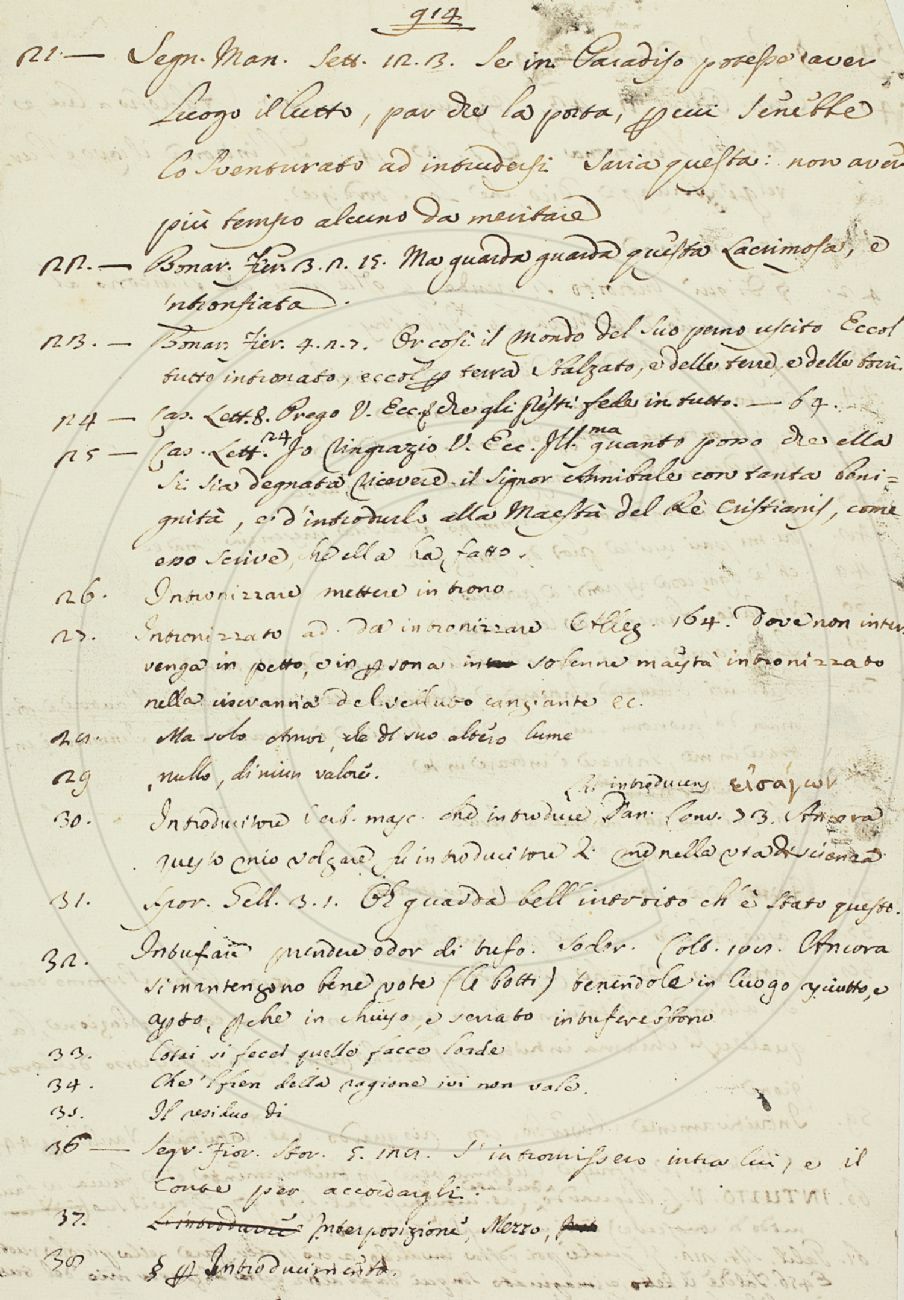 914
21. — Segn. Man. Sett. 12. 3. Se in Paradiso potesse aver
luogo il lutto, par che la porta, per cui s'
lo sventurato ad intrudersi saria questa: non aver
più tempo alcuno da meritare
22. — Bonar. Fier. 3. 2. 15. Ma guarda guarda questa lacrimosa, e
'ntronfiata.
23. — Bonar. Fier. 4. 2. 7. Or così il mondo del suo perno uscito Eccol
tutto intronato, eccol per terra sbalzato, e delle terre, e delle torri.
24 — Cas. Lett. 8. Prego V. Ecc. che gli presti fede in tutto. — 64.
25 — Cas. Lett. 24 Io ringrazio V. Ecc. Ill.ma quanto posso che ella
si sia degnata ricevere il signor Annibale con tanta beni=
gnità, e d'introdurlo alla Maestà del Re Cristianis, come
esso scrive, che ella ha fatto.
26. Intronizzare mettere in trono
27. Intronizzato ad. da intronizzare Alleg. 164. Dove non inter
venga in petto, e in persona in solenne maestà intronizzato
nella ciscranna del velluto cangiante ec.
28. Ma solo Amor, che di suo altero lume
29 nullo, di niun valore.
introducens εἰσάγων
30. Introducitore Verb. masc. che introduce Dan. Conv. 73. Ancora
questo mio volgare fu introducitore di me nella via di scienza
31. Spor. Gell. 3. 1. Oh guarda bell'introito ch'è stato questo.
32. Intufare prendere odor di tufo. Soder. Colt. 109. Ancora
si mantengono bene vote (le botti) tenendole in luogo asciutto, e
aperto, perche in chiuso, e serrato intuferebbono
33. Cotai si fecer quelle facce lorde
34. Che 'l fren della ragione ivi non vale.
35. Il residuo di
36 — Segr. Fior. Stor. 5. 129. S'intromissero intra lui, e il
Conte per accordargli.
37. Interposizione, Mezzo,
38 § per Introducimento.